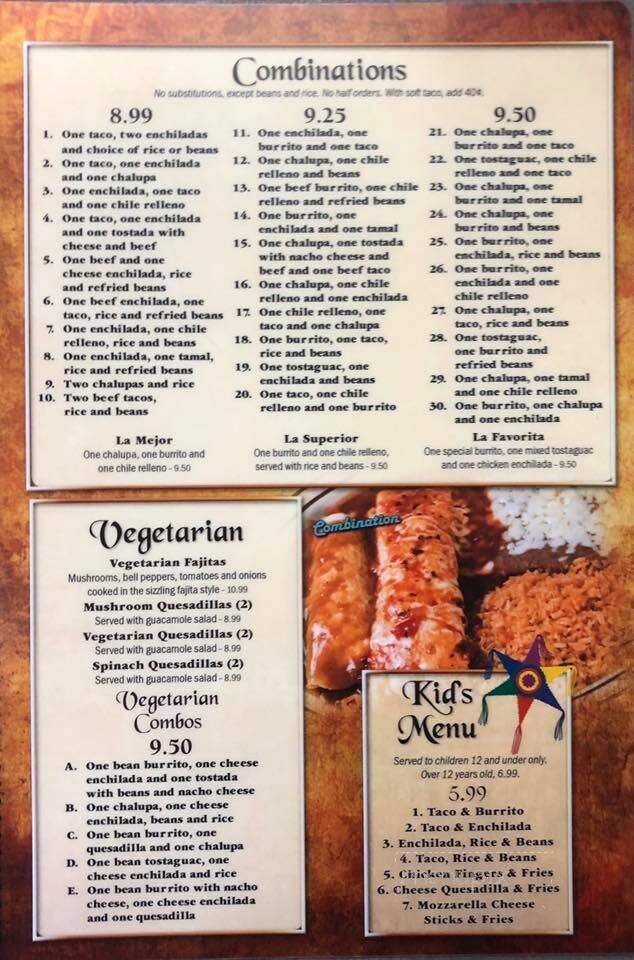 Combinations
No substitutions, except beans and rice. No half orders. With soft taco, add 40¢.
8.99
1. One taco, two enchiladas
and choice of rice or beans
2. One taco, one enchilada
and one chalupa
3. One enchilada, one taco
and one chile relleno
4. One taco, one enchilada
and one tostada with
cheese and beef
5. One beef and one
cheese enchilada, rice
and refried beans
6. One beef enchilada, one
taco, rice and refried beans
7. One enchilada, one chile
relleno, rice and beans
8. One enchilada, one tamal,
rice and refried beans
9. Two chalupas and rice
10. Two beef tacos,
rice and beans
9.25
11. One enchilada, one
burrito and one taco
12. One chalupa, one chile
relleno and beans
13. One beef burrito, one chile
relleno and refried beans
14. One burrito, one
enchilada and one tamal
15. One chalupa, one tostada
with nacho cheese and
beef and one beef taco
16. One chalupa, one chile
relleno and one enchilada
17. One chile relleno, one
taco and one chalupa
18. One burrito, one taco,
rice and beans
19. One tostaguac, one
enchilada and beans
20. One taco, one chile
relleno and one burrito
9.50
21. One chalupa, one
burrito and one taco
22. One tostaguac, one chile
relleno and one taco
23. One chalupa, one
burrito and one tamal
24. One chalupa, one
burrito and beans
25. One burrito, one
enchilada, rice and beans
26. One burrito, one
enchilada and one
chile relleno
27. One chalupa, one
taco, rice and beans
28. One tostaguac,
one burrito and
refried beans
29. One chalupa, one tamal
and one chile relleno
30. One burrito, one chalupa
and one enchilada
La Mejor
One chalupa, one burrito and
one chile relleno - 9.50
La Superior
One burrito and one chile relleno,
served with rice and beans - 9.50
La Favorita
One special burrito, one mixed tostaguac
and one chicken enchilada - 9.50
Vegetarian
Vegetarian Fajitas
Mushrooms, bell peppers, tomatoes and onions
cooked in the sizzling fajita style - 10.99
Mushroom Quesadillas (2)
Served with guacamole salad - 8.99
Vegetarian Quesadillas (2)
Served with guacamole salad - 8.99
Spinach Quesadillas (2)
Served with guacamole salad - 8.99
Vegetarian
Combos
9.50
A. One bean burrito, one cheese
enchilada and one tostada
with beans and nacho cheese
B. One chalupa, one cheese
enchilada, beans and rice
C. One bean burrito, one
quesadilla and one chalupa
D. One bean tostaguac, one
cheese enchilada and rice
E. One bean burrito with nacho
cheese, one cheese enchilada
and one quesadilla
Combination
Kid's
Menu
Served to children 12 and under only.
Over 12 years old, 6.99.
5.99
1. Taco & Burrito
2. Taco & Enchilada
3. Enchilada, Rice & Beans
4. Taco, Rice & Beans
5. Chicken Fingers & Fries
6. Cheese Quesadilla & Fries
7. Mozzarella Cheese
Sticks & Fries